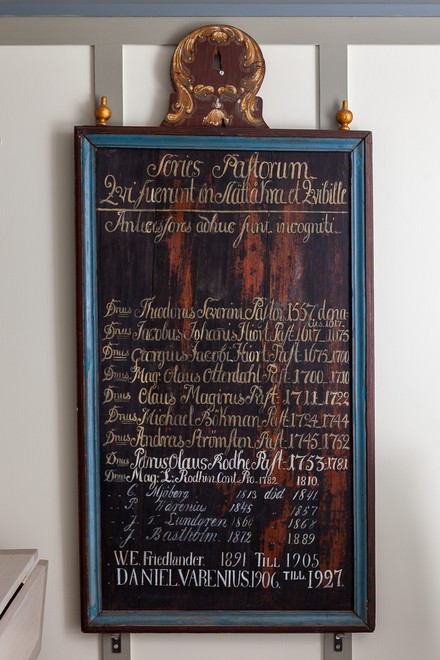 Series Pastorum
Qvi fuerunt in Slättåkra et Qvibille
Antecessores adhuc sunt incogniti.
Dnus Theodorus Severini Pastor 1557. dena-
tus. 1617.
Dnus Jacobus Johanis Hiort Past. 1617. 1675
Dnus Georgius Jacobi Hiort Past. 1675. 1700
Dnus Mag. Olaus Otterdahl Past. 1700. 1710
Dnus Olaus Magirus Past. 1711. 1722
Dnus Michael Böhmar Past. 1724. 1744
Dnus Andras Strömsten Past. 1745. 1752
Dnus Petrus Olaus Rodhe Past. 1753. 1781
Dnus Mag. L. Rodhin Cont. Pro. 1782 1810.
" C. Mjöberg 1813 död 1841
" P. Warenius 1845 " 1857
" J. T. Lundgren 1860 " 1868
" J. Bastholm. 1872 1889
W.E. Friedlander. 1891 TILL 1905
DANIEL.VARENIUS.1906. TILL. 1927.